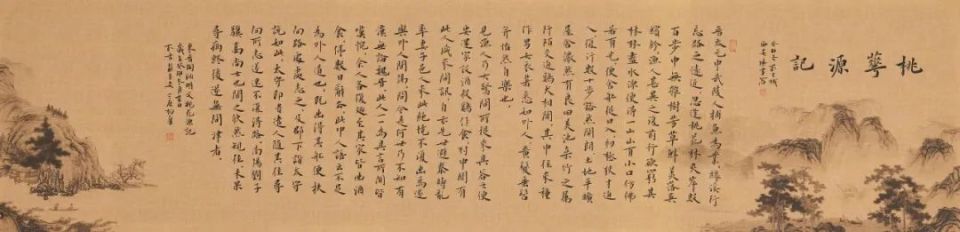 桃華源記
晉太元中武陵人捕魚為業緣溪行
忘路之遠近忽逢桃花林夾岸數
百步中無雜樹芳草鮮美落英
繽紛漁人甚異之復前行欲窮其
林林盡水源便得一山山有小口仿佛
若有光便舍船從口入初極狹才通
人復行數十步豁然開朗土地平曠
屋舍儼然有良田美池桑竹之屬
阡陌交通雞犬相聞其中往來種
作男女衣著悉如外人黃髮垂髫
並怡然自樂也
見漁人乃大驚問所從來具答之便
要還家設酒殺雞作食村中聞有
此人咸來問訊自云先世避秦時亂
率妻子邑人來此絕境不復出焉遂
與外人間隔問今是何世乃不知有
漢無論魏晉此人一一為具言所聞皆
嘆惋餘人各復延至其家皆出酒
食停數日辭去此中人語云不足
為外人道也既出得其船便扶
向路處處志之及郡下詣太守
說如此太守即遣人隨其往尋
向所志遂迷不復得路南陽劉子
驥高尚士也聞之欣然規往未果
尋病終後遂無問津者
東晉陶淵明文桃花源記